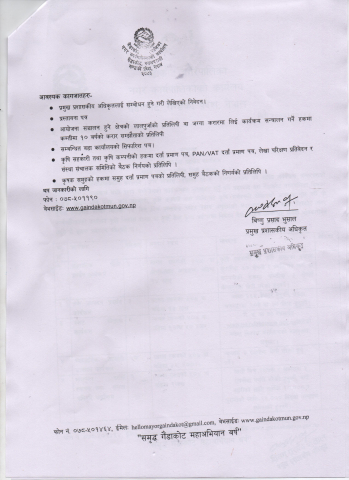 आवश्यक कागजातहरु:-
प्रमुख प्रशासकीय अधिकृतलाई सम्बोधन हुने गरी लेखिएको निवेदन।
प्रस्तावना पत्र
आयोजना सञ्चालन हुने क्षेत्रको लालपुर्जाको प्रतिलिपि वा जग्गा करारमा लिई कार्यक्रम सञ्चालन गर्ने हकमा
कम्तीमा १० वर्षको करार सम्झौताको प्रतिलिपी
सम्बन्धित वडा कार्यालयको सिफारिस पत्र।
कृषि सहकारी तथा कृषि कम्पनीको हकमा दर्ता प्रमाण पत्र, PAN/VAT दर्ता प्रमाण पत्र, लेखा परिक्षण प्रतिवेदन र
संस्था सञ्चालक समितिको बैठक निर्णयको प्रतिलिपि ।
कृषक समुहको हकमा समुह दर्ता प्रमाण पत्रको प्रतिलिपी, समुह बैठकको निर्णयको प्रतिलिपि ।
थप जानकारीको लागि
फोन : ०७८-५०१११०
वेबसाईट: www.gaindakotmun.gov.np
बिष्णु प्रसाद भुसाल
प्रमुख प्रशासकीय अधिकृत
प्रमुख प्रशासकीय अधिकृत
फोन नं. ०७८-५०१४६४, ईमेल: hellomayorgaindakot@gmail.com, वेबसाईट: www.gaindakotmun.gov.np
"समृद्ध गैंडाकोट महाअभियान वर्ष"